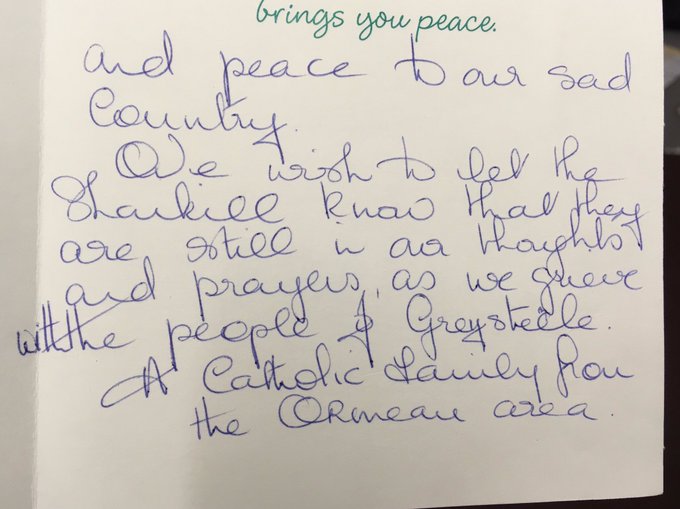 brings you peace.
and peace to our sad
Country.
We wish to let the
Shankill know that they
are still in our thoughts
and prayers, as we grieve
with the people of Greysteele.
A Catholic Family from
the Ormeau area.